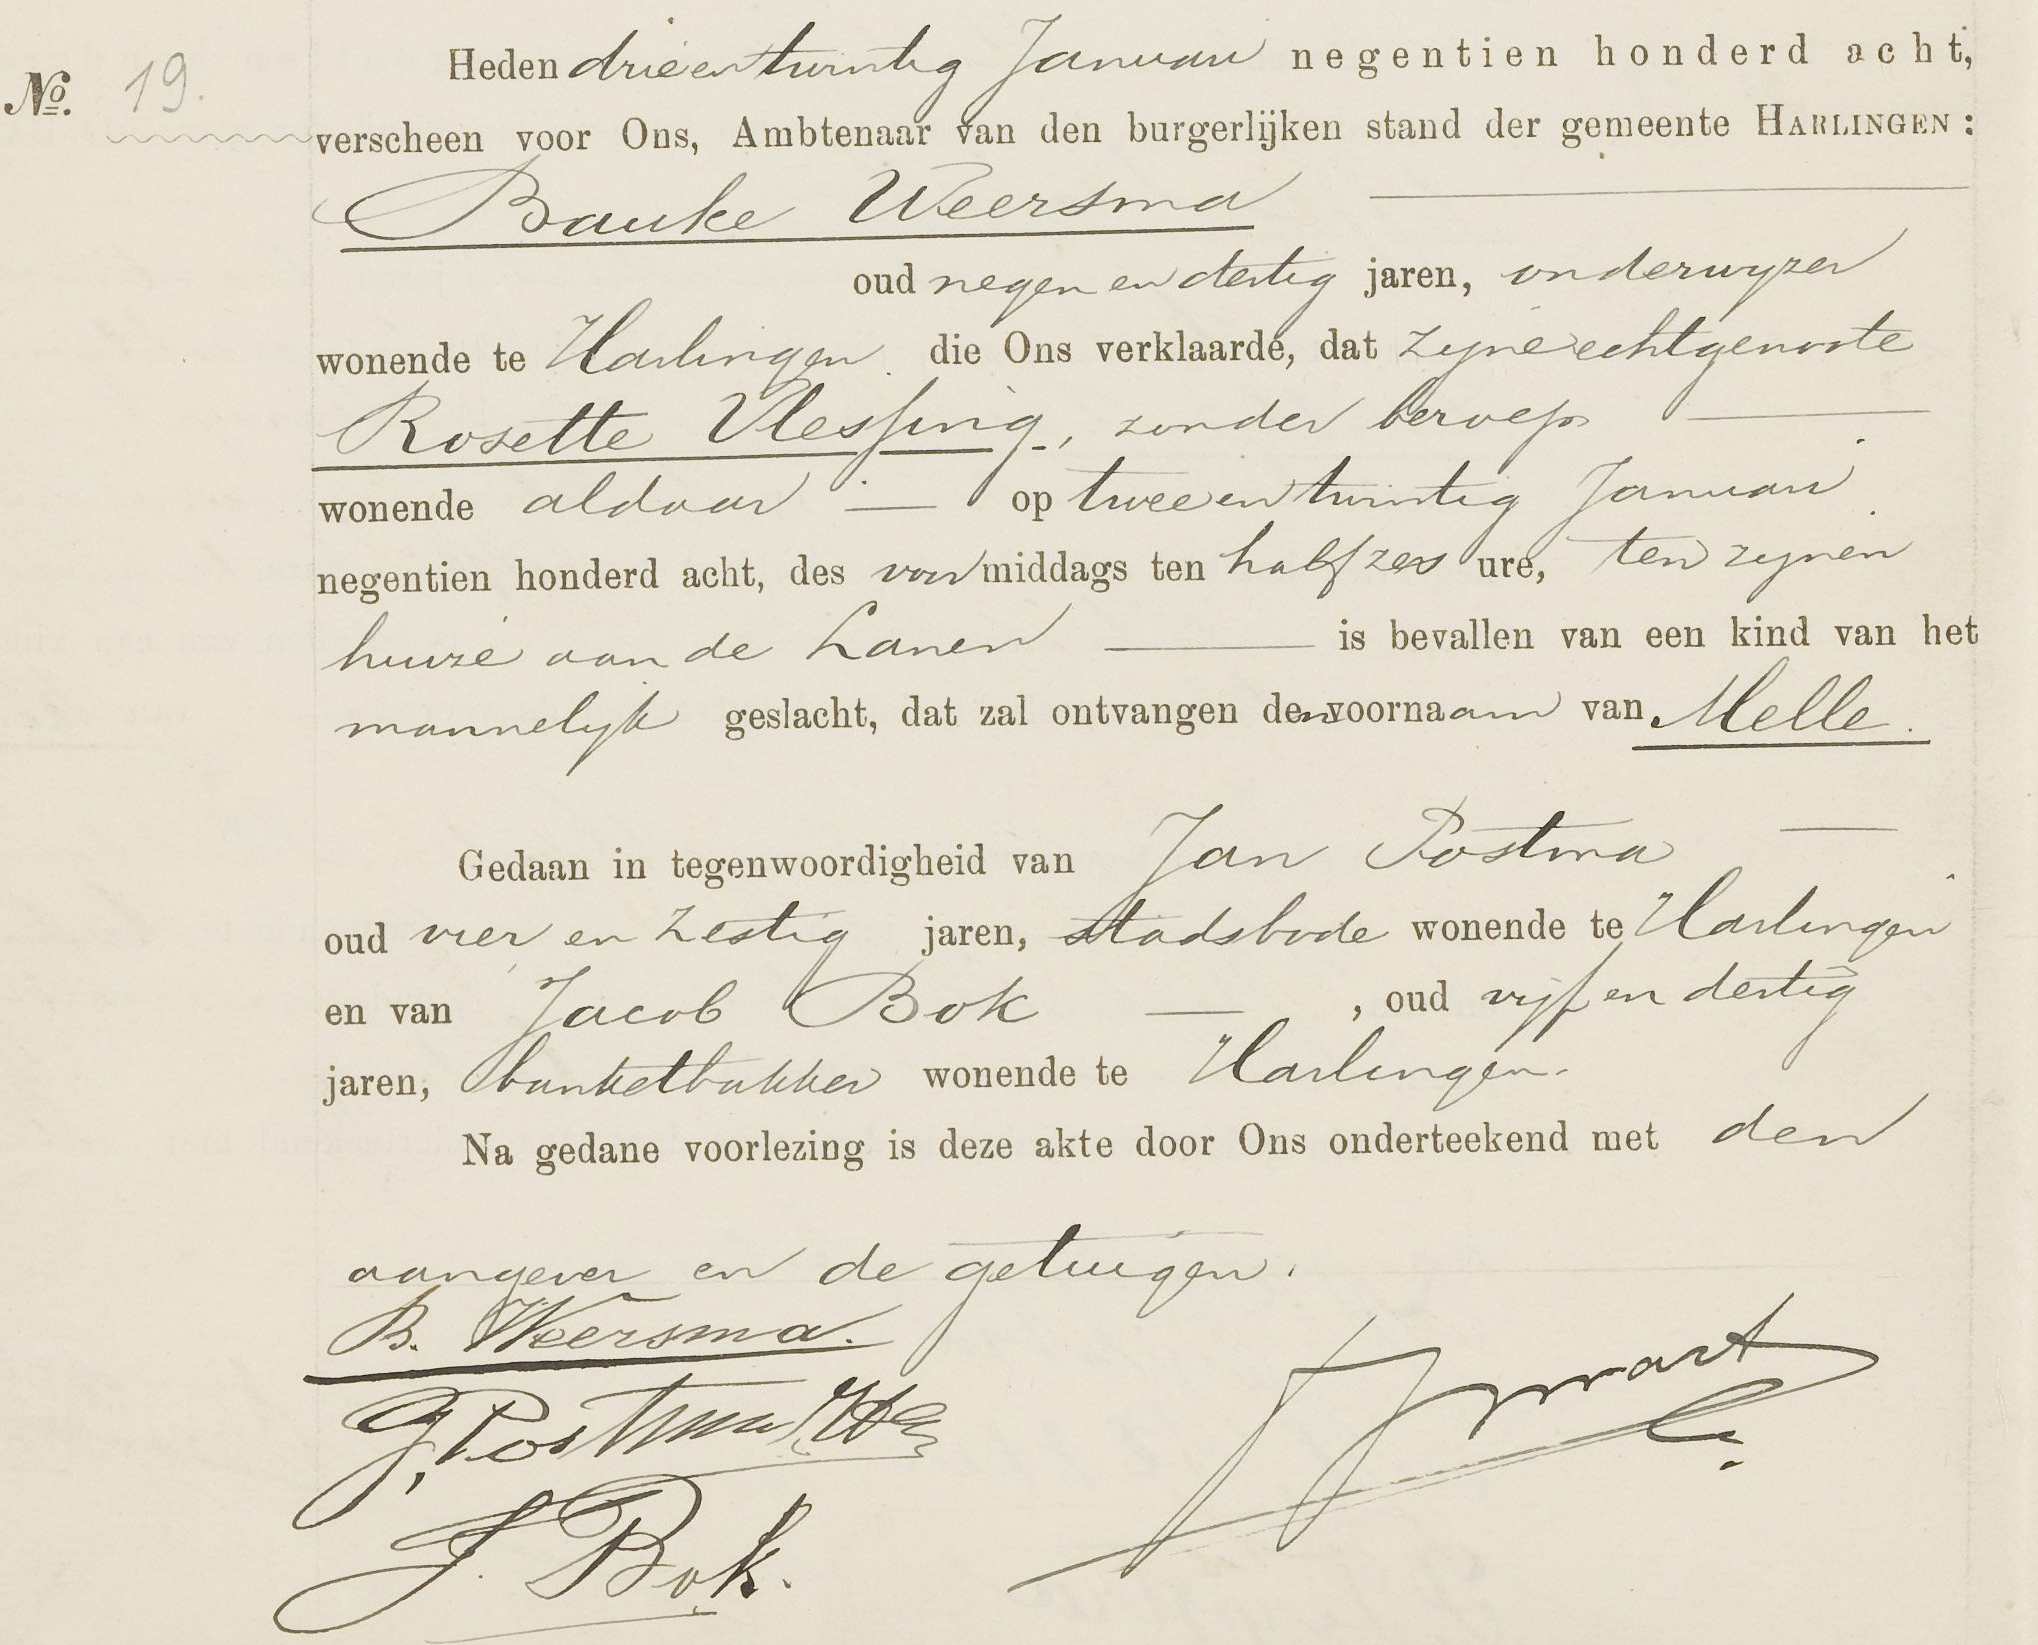 Heden drieentwintig Januari negentien honderd acht,
No. 19.
verscheen voor Ons, Ambtenaar van den burgerlijken stand der gemeente HARLINGEN:
Bauke Weersma
oud negen en dertig jaren, onderwyzer
wonende te Harlingen. die Ons verklaarde, dat zyne echtgenoote
Rosette Vlessing, zonder beroep
wonende aldaar op twee en twintig Januari
negentien honderd acht, des voormiddags ten half zes ure, ten zynen
huize aan de Lanen is bevallen van een kind van het
mannelyk geslacht, dat zal ontvangen den voornaam van Melle.
Gedaan in tegenwoordigheid van Jan Postma
oud vier en zestig jaren, stadsbode wonende te Harlingen
en van Jacob Bok , oud vijf en dertig
jaren, banketbakker wonende te Harlingen.
Na gedane voorlezing is deze akte door Ons onderteekend met den
aangever en de getuigen.
B. Weersma.
J. Postma
J. Bok.